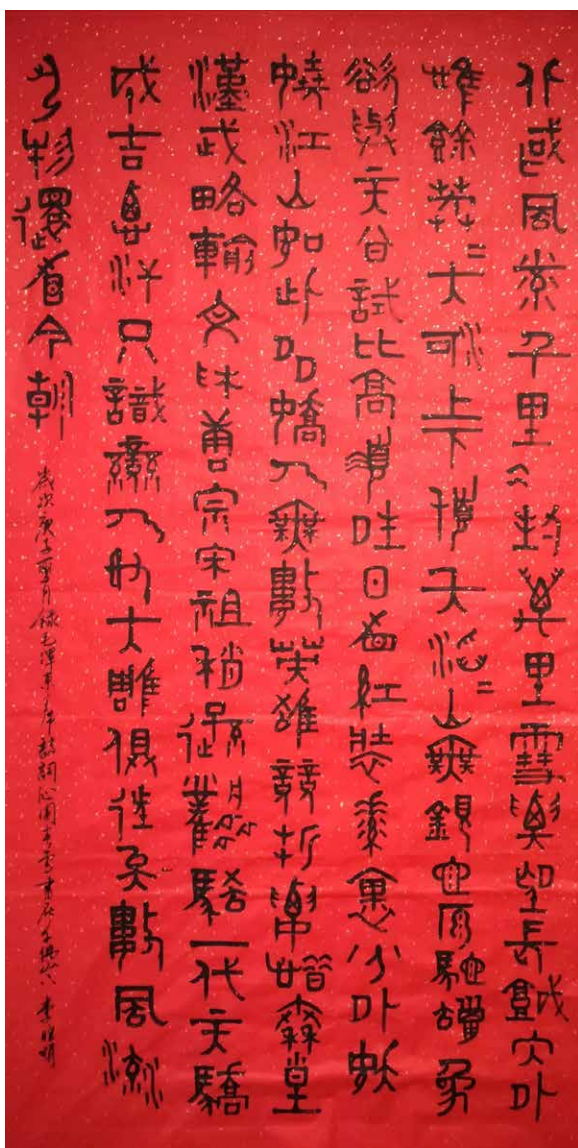 北國風光千里冰封萬里雪飄望長城內外
惟餘莽=大河上下頓失滔=山舞銀蛇原馳蠟象
欲與天公試比高須晴日看紅裝素裹分外妖
嬈江山如此多嬌引無數英雄競折腰惜秦皇
漢武略輸文采唐宗宋祖稍遜風騷一代天驕
成吉思汗只識彎弓射大雕俱往矣數風流
人物還看今朝
歲次庚子月錄毛澤東詩詞沁園春雪